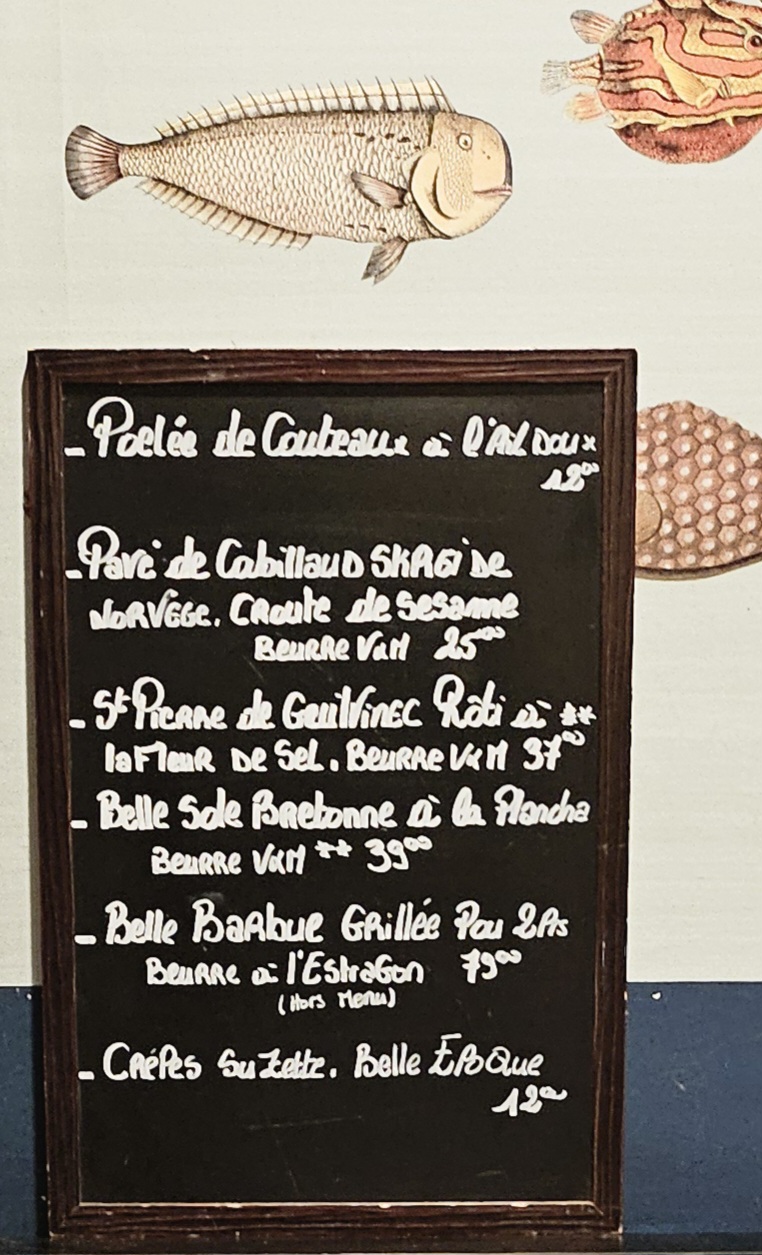 - Poelée de Couteaux à l'Ail Doux
18⁰⁰
- Pavé de Cabillaud SKREI de
NORVÈGE. Croute de Sesame
Beurre V&M 25⁰⁰
- St Pierre de Guilvinec Roti à **
la Fleur de Sel. Beurre V&M 37⁰⁰
- Belle Sole Bretonne à la Plancha
Beurre V&M ** 39⁰⁰
- Belle Barbue Grillée Pou 2Ps
Beurre à l'Estragon 79⁰⁰
(Hors Menu)
- Crêpes Suzette. Belle Époque
12⁰⁰